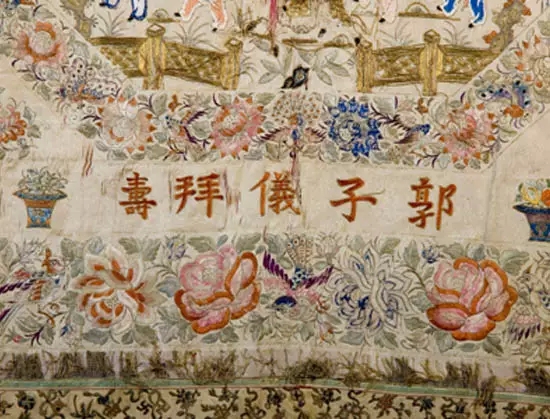 郭子儀拜壽